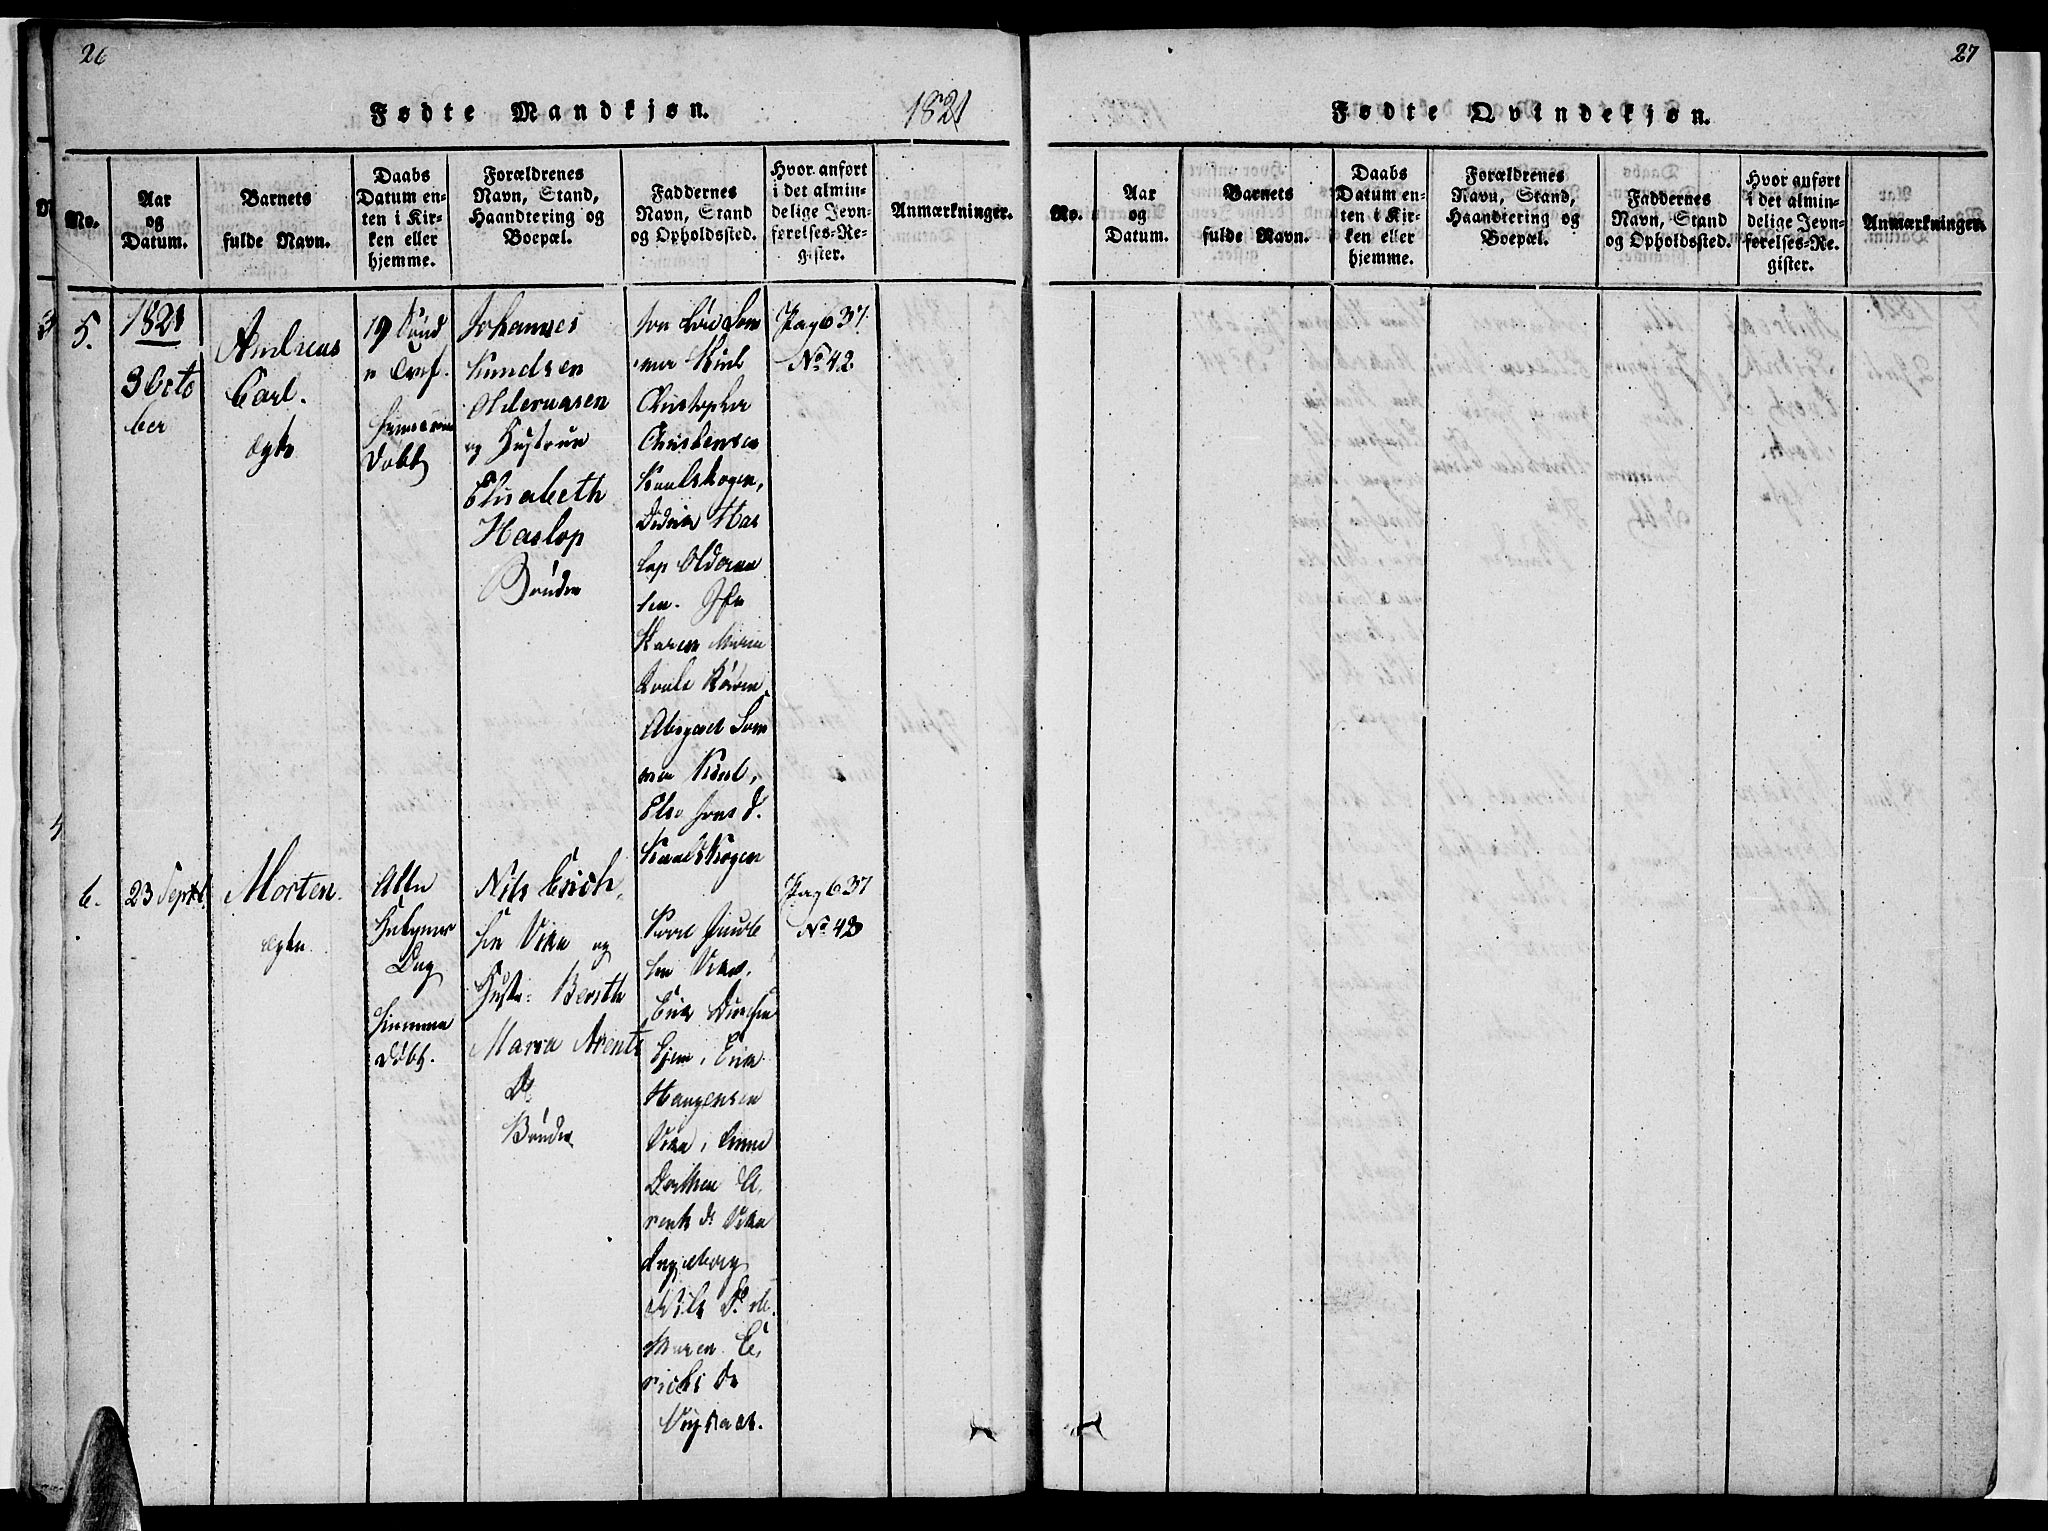 26
Fødte Mandkjøn.
1821
No.
Aar
og
Datum.
Barnets
fulde Navn.
Daabs
Datum en-
ten i Kir-
ken eller
hjemme.
Forældrenes
Navn, Stand,
Haandtering og
Boepæl.
Faddernes
Navn, Stand
og Opholdssted.
Hvor anført
i det almin-
delige Jevn-
førelses-Re-
gister.
Anmærkninger.
5.
1821
3 Octo
ber
Andreas
Carl.
ægte
19 Sønd
hjemme
Døbt
Johannes
Knudsen
Oldernæsen
og Hustrue
Elisabeth
Haslop
Bønder
Christopher
Christensen
Kaalskogen,
Didrik Has
lop Oldernæ
sen.
Karen Maria
Abigael
Else Jons d.
Kaalskogen
Pag 637
No 42
6.
23 Septbr
Morten.
ægte
Alle
Helgener
Dag
hjemme
Døbt.
Nils Erich
sen Vika og
Hustr: Bereth
Maria Arents
Dr
Bønder
sen Vika.
Erik
Hangensen
Vika, Anne
Dorthea A,
rents dr Vika
Ingeborg
Nils Dr
Maren E,
richs Dr
Pag 637
No 43
27
Fødte Qvindekjøn.
No.
Aar
og
Datum.
Barnets
fulde Navn.
Daabs
Datum en-
ten i Kir-
ken eller
hjemme.
Forældrenes
Navn, Stand,
Haandtering og
Boepæl.
Faddernes
Navn, Stand
og Opholdssted.
Hvor anført
i det almin-
delige Jevn-
førelses-Re-
gister.
Anmærkninger.